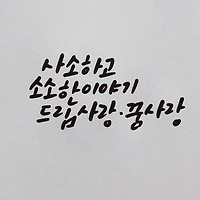 사소하고
소소한이야기
드립사랑·꿍사랑